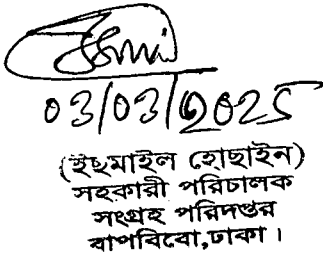 03/03/2025
(ইছমাইল হোছাইন)
সহকারী পরিচালক
সংগ্রহ পরিদপ্তর
বাপবিবো,ঢাকা।